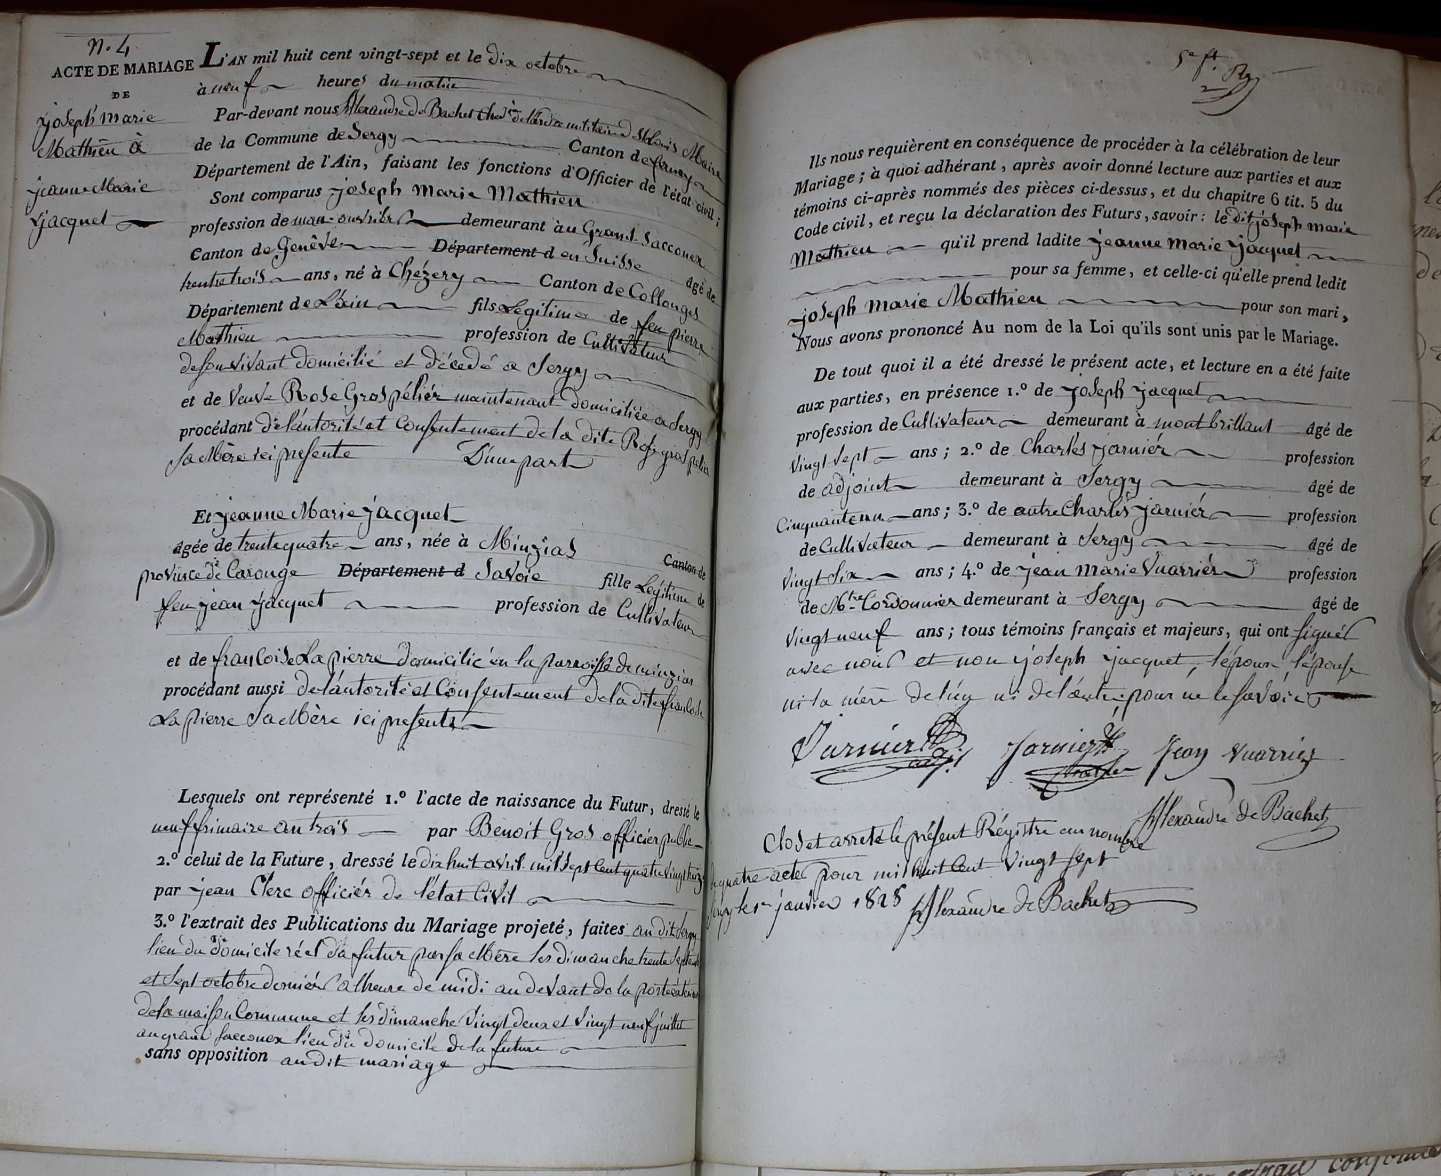 N.º 4
ACTE DE MARIAGE
DE
joseph marie
Mathieu à
jeanne Marie
jacquet
L'AN mil huit cent vingt-sept et le dix octobre
à neuf heures du matin
Par-devant nous Alexandre de Bachet Chev.r de l'ordre militaire de St Louis Maire
de la Commune de Sergy Canton de ferney
Département de l'Ain, faisant les fonctions d'Officier de l'état civil;
Sont comparus joseph Marie Mathieu
profession de man-ouvrier demeurant au Grand Sacconex
Canton de Genêve Département d en Suisse âgé de
trente trois ans, né à Chézery Canton de Collonges
Département de L'ain fils Légitime de feu pierre
Mathieu profession de Cultivateur
de son vivant domicilié et décédé a Sergy
et de veuve Rose Grospélier maintenant domiciliée a Sergy
procédant de l'autorité et Consentement de la dite Rose grospelier
sa Mère ici presente D'une part
Et jeanne Marie jacquet
âgée de trente quatre ans, née à Minzias Canton de
province de Carouge Département d Savoie fille Légitime de
feu jean jacquet profession de Cultivateur
et de francoise Lapierre domicilié en la parroisse de minzias
procédant aussi de l'autorité et Consentement de la dite francoise
Lapierre sa Mère ici presente
Lesquels ont représenté 1.º l'acte de naissance du Futur, dressé le
neuf frimaire an trois par Benoit Gros officier public
2.º celui de la Future, dressé le dix huit avril mil sept cent quatre vingt treize
par jean Clerc officiér de l'état Civil
3.º l'extrait des Publications du Mariage projeté, faites audit Sergy
lieu du domicile réel du futur par sa Mère les dimanche trente septembre
et sept octobre derniér a l'heure de midi au devant de la porte extérieure
de la maison Commune et les dimanche vingt deux et vingt neuf juillet
au grand sacconex lieu du domicile de la future
sans opposition audit mariage
5e ft.
Ils nous requièrent en conséquence de procéder à la célébration de leur
Mariage; à quoi adhérant, après avoir donné lecture aux parties et aux
témoins ci-après nommés des pièces ci-dessus, et du chapitre 6 tit. 5 du
Code civil, et reçu la déclaration des Futurs, savoir: le dit joseph marie
Mathieu qu'il prend ladite jeanne marie jacquet
pour sa femme, et celle-ci qu'elle prend ledit
joseph marie Mathieu pour son mari,
Nous avons prononcé Au nom de la Loi qu'ils sont unis par le Mariage.
De tout quoi il a été dressé le présent acte, et lecture en a été faite
aux parties, en présence 1.º de joseph jacquet
profession de Cultivateur demeurant à montbrillant âgé de
vingt sept ans; 2.º de Charles jarniér profession
de adjoint demeurant à Sergy âgé de
Cinquante un ans; 3.º de autre Charles jarniér profession
de Cultivateur demeurant à Sergy âgé de
vingt six ans; 4.º de jean Marie Vuarriér profession
de M.tre Cordonnier demeurant à Sergy âgé de
vingt neuf ans; tous témoins français et majeurs, qui ont signés
avec nous et non joseph jacquet, l'époux l'épouse
ni la mère de l'un ni de l'autre, pour ne le savoir
Jarnier adjt Jarnier Jean Vuarrier
Alexandre de Bachet
Clos et arreté le présent Régistre au nombre
de quatre actes pour mil huit Cent vingt sept
Sergy le 1er janvier 1828 Alexandre de Bachet